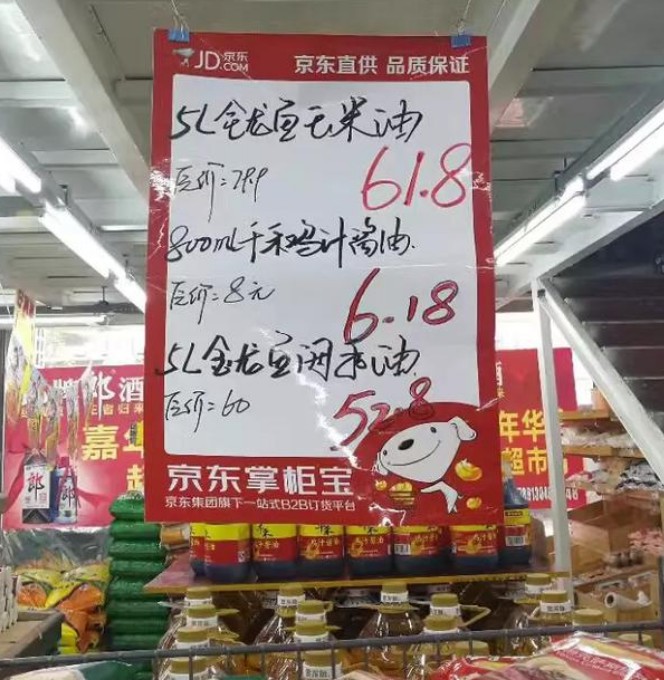 JD.京东
.COM
京东直供 品质保证
5L金龙鱼玉米油
巨价:79.9
61.8
800mL千禾鸡汁酱油
巨价:8元
6.18
5L金龙鱼调和油
巨价:60
52.8
京东掌柜宝
京东集团旗下一站式B2B订货平台
郎酒
嘉年
年华
超市
郎